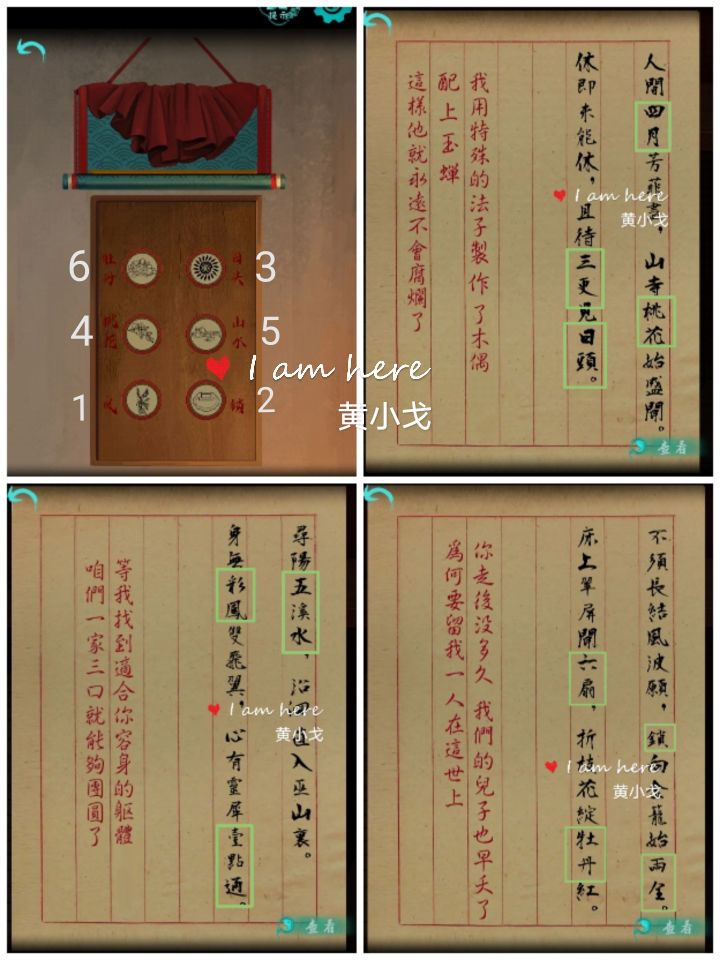 提示
6 牡丹
日头 3
4 桃花
山水 5
1 凤
锁 2
I am here
黄小戈
人間四月芳菲盡，山寺桃花始盛開。
休即未能休，且待三更見日頭。
我用特殊的法子製作了木偶
配上玉蟬
這樣他就永遠不會腐爛了
I am here
黄小戈
查看
尋陽五溪水，沿洄直入巫山裏。
身無彩鳳雙飛翼，心有靈犀壹點通。
等我找到適合你容身的軀體
咱們一家三口就能夠團圓了
I am here
黄小戈
查看
不須長結風波願，鎖向金籠始兩全。
床上翠屏開六扇，折枝花綻牡丹紅。
你走後没多久 我們的兒子也早夭了
爲何要留我一人在這世上
I am here
黄小戈
查看